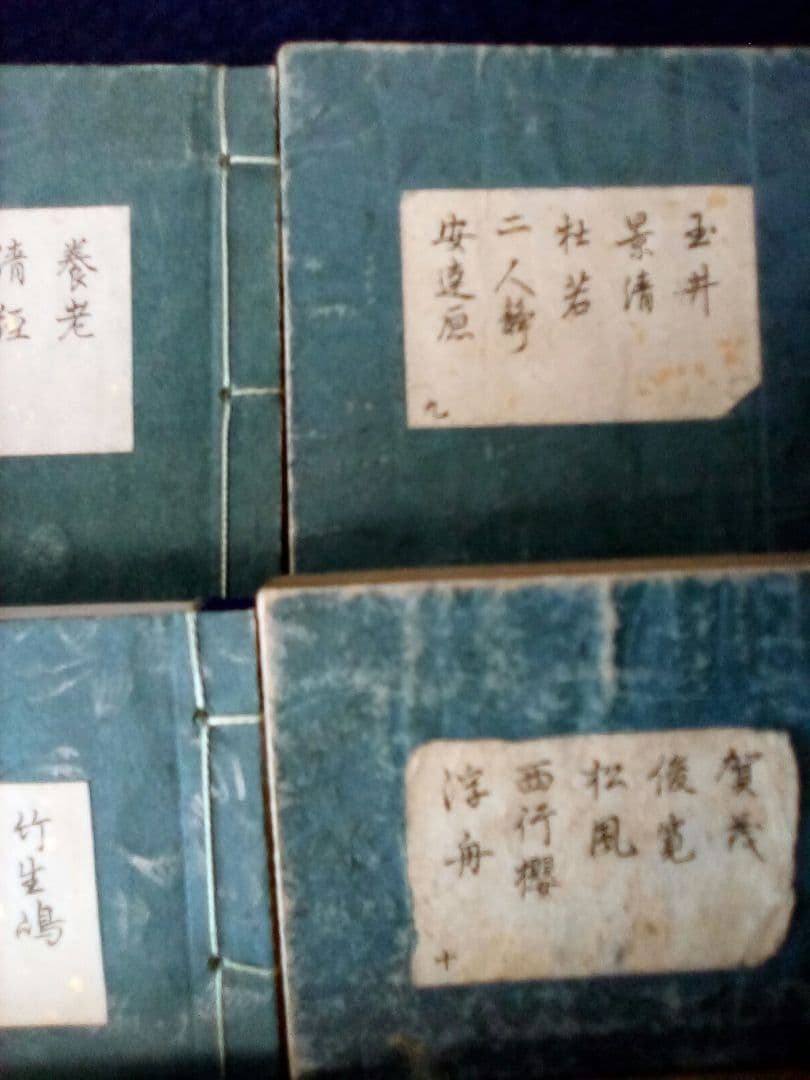 玉井
景清
杜若
二人静
安達原
九
養老
清経
賀茂
俊寛
松風
西行櫻
浮舟
十
竹生嶋